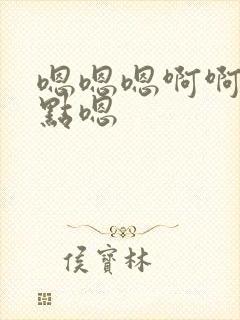 嗯嗯嗯啊啊
點嗯
侯寶林